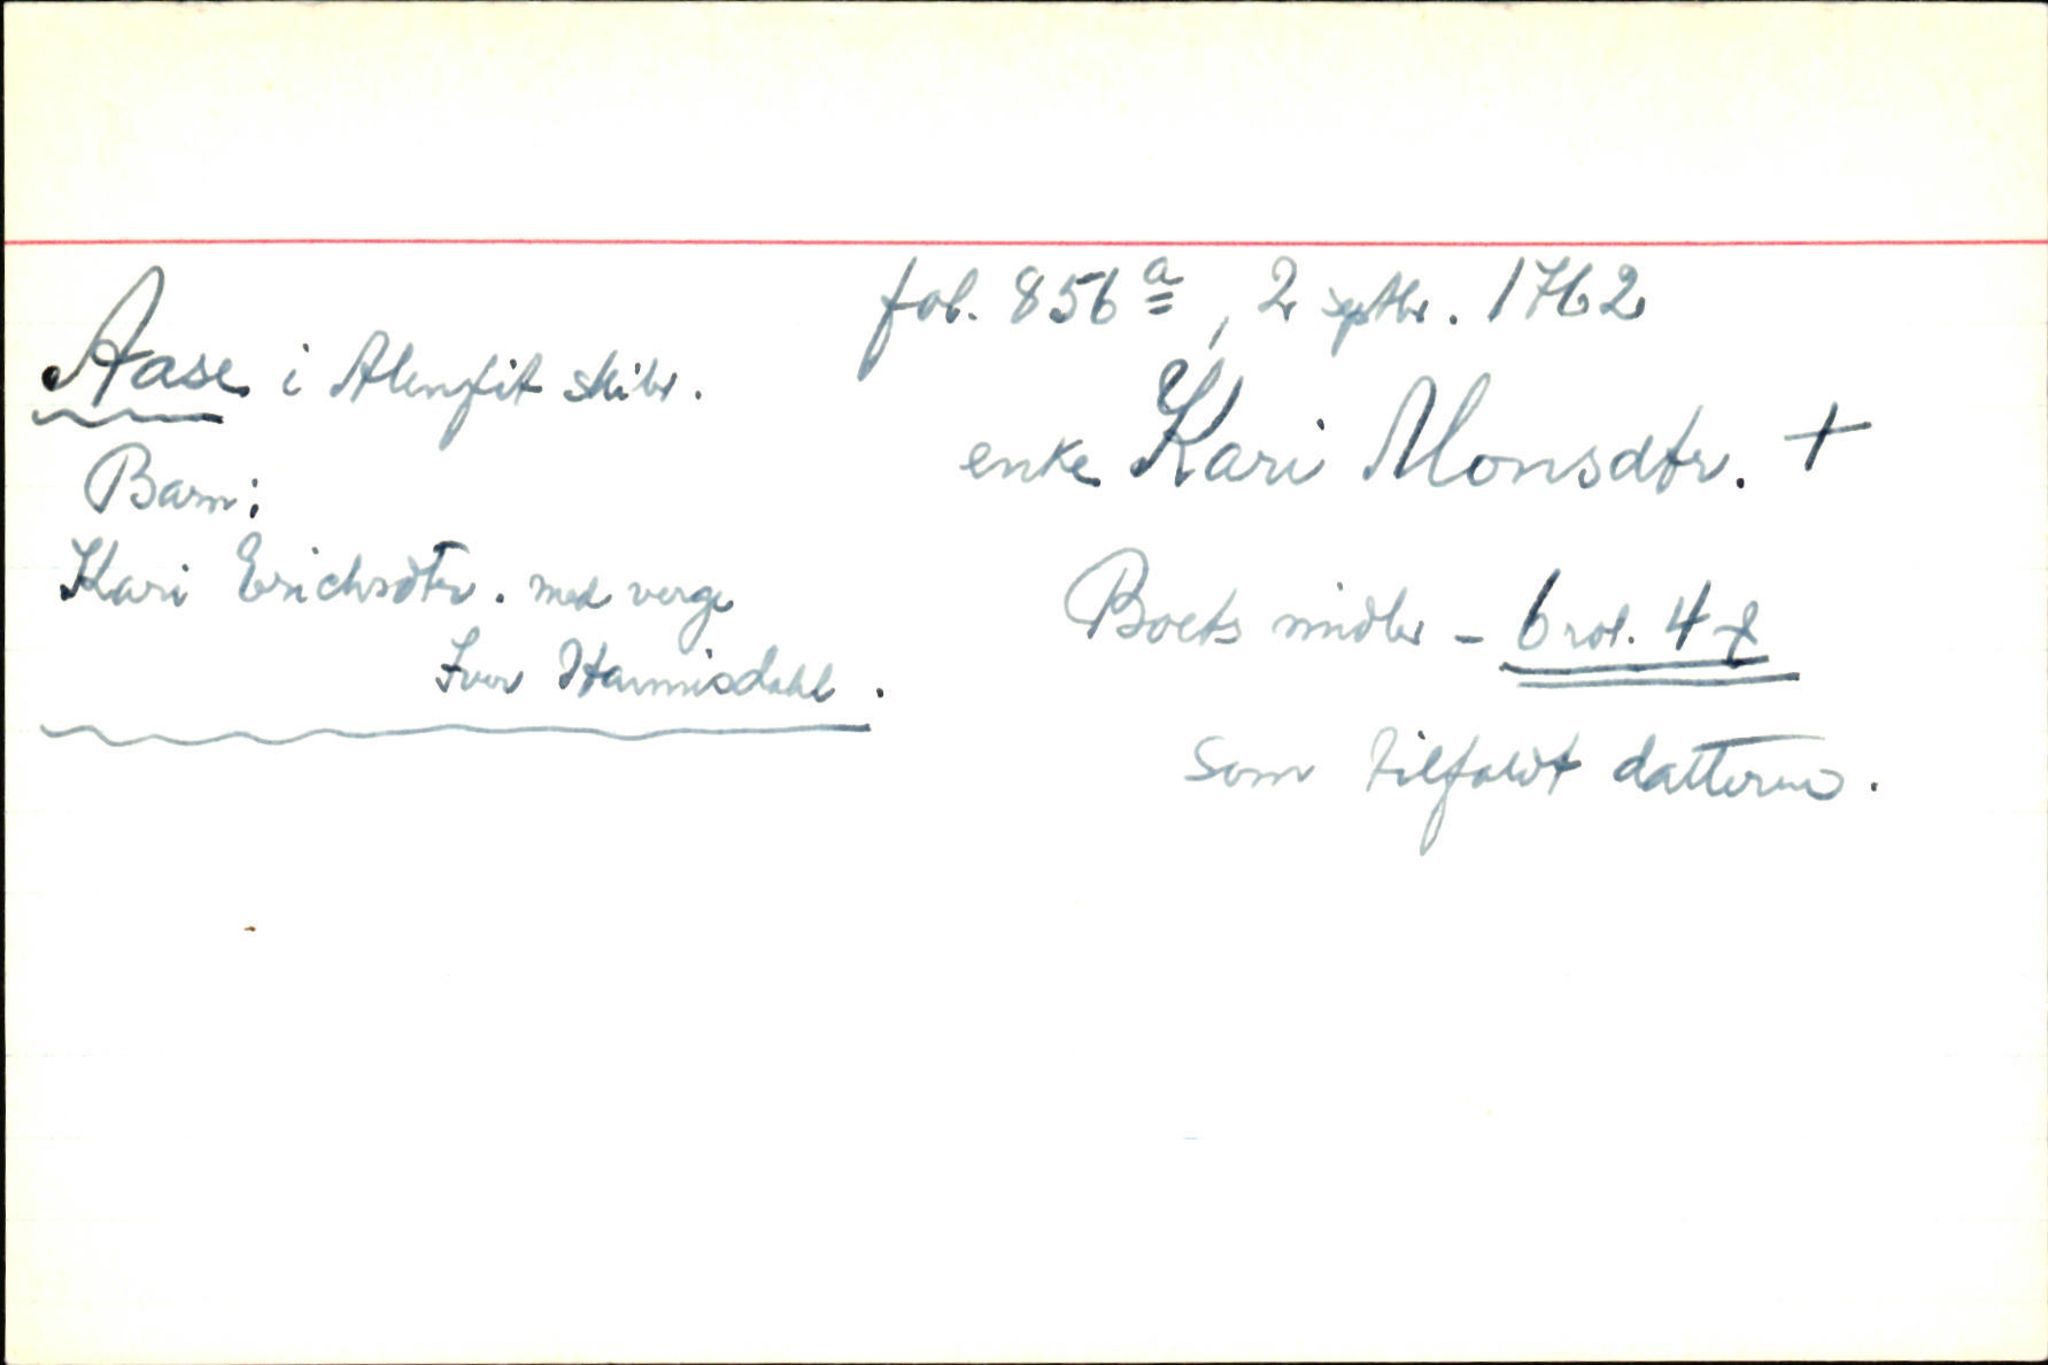 fol. 856a, 2 septbr. 1762
Aase i Alenfit skibr.
enke Kari Monsdtr. +
Barn:
Kari Erichsdtr. med verge
Iver Hamisdahl.
Boets midler - 6 rdl. 4 β
som tilfaldt datteren.